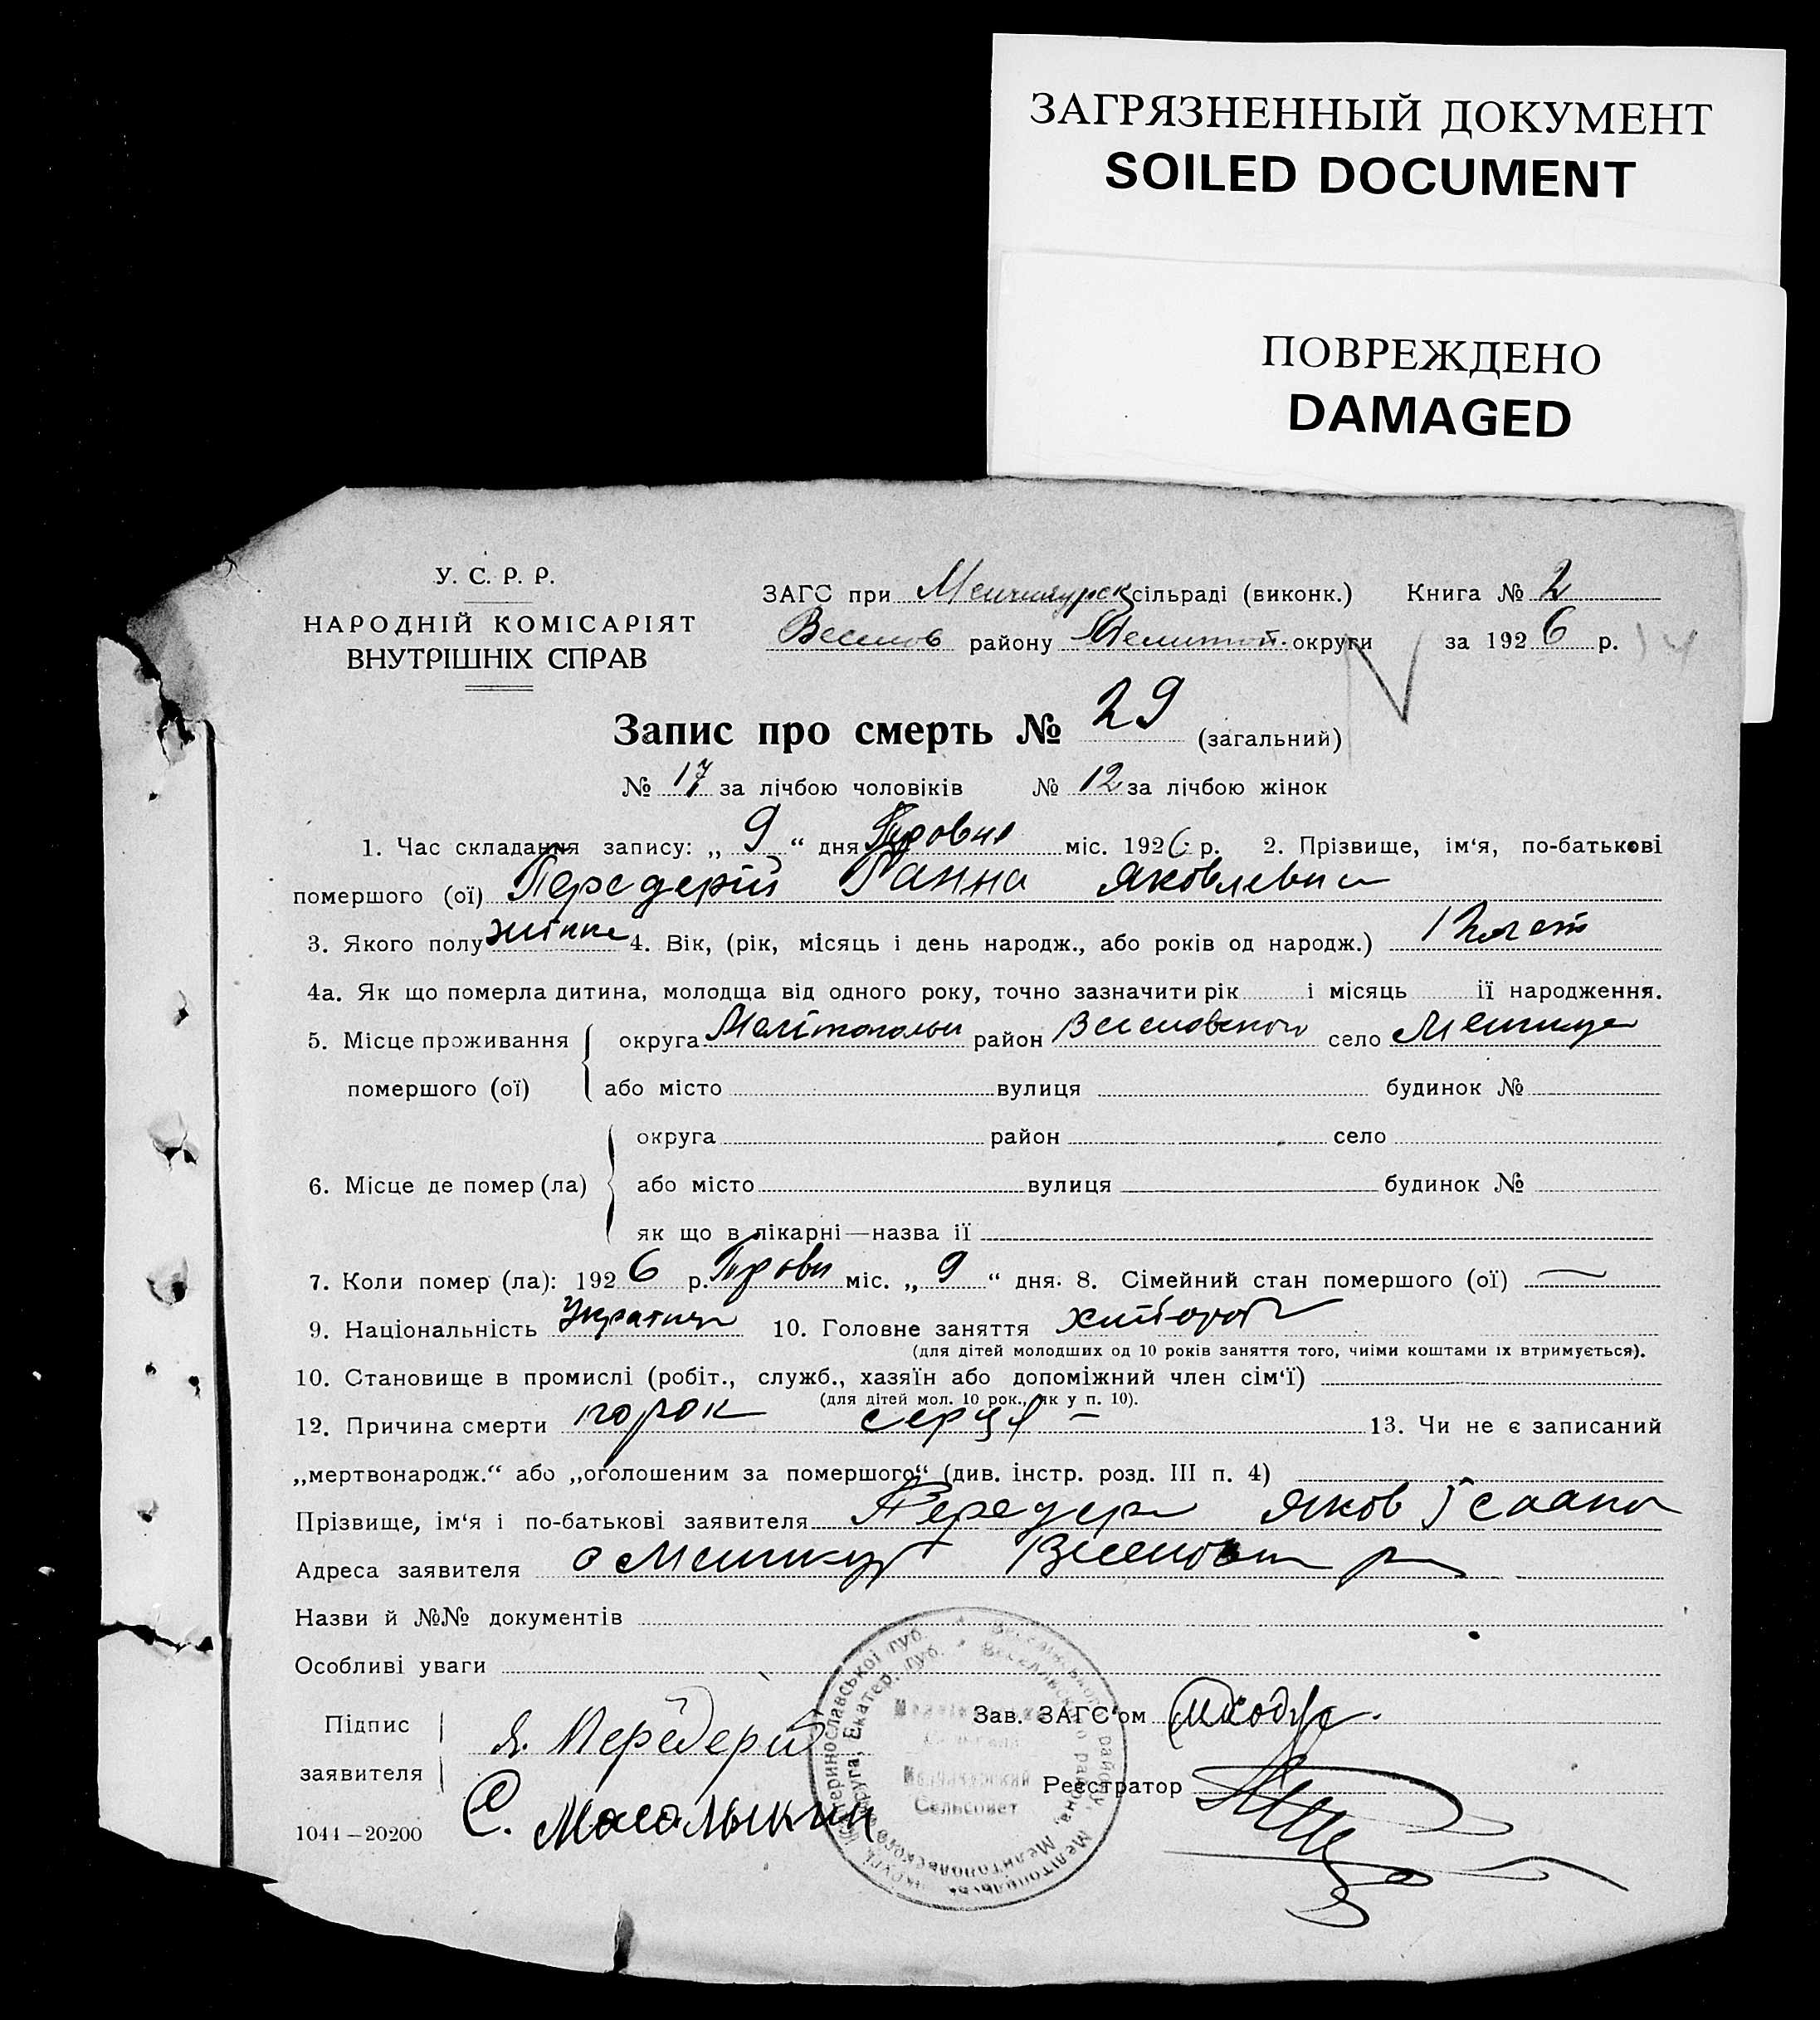 ЗАГРЯЗНЕННЫЙ ДОКУМЕНТ
SOILED DOCUMENT
ПОВРЕЖДЕНО
DAMAGED
У. С. Р. Р.
НАРОДНІЙ КОМІСАРІЯТ
ВНУТРІШНІХ СПРАВ
ЗАГС при сільраді (виконк.) Книга № 2
Веселов району Мелитоп. округи за 1926 р. 14
Запис про смерть № 29 (загальний)
№ 17 за лічбою чоловіків № 12 за лічбою жінок
1. Час складання запису: „ 9 “ дня Тровня міс. 1926 р. 2. Прізвище, ім‘я, по-батькові
помершого (ої) Передерій Ганна Яковлевна
3. Якого полу жінка 4. Вік, (рік, місяць і день народж., або років од народж.) 12 лет
4а. Як що померла дитина, молодща від одного року, точно зазначити рік і місяць ії народження.
5. Місце проживання округа район село
помершого (ої) або місто вулиця будинок №
округа район село
6. Місце де помер (ла) або місто вулиця будинок №
як що в лікарні—назва ії
7. Коли помер (ла): 1926 р. Тровн міс. „ 9 “ дня. 8. Сімейний стан помершого (ої) —
9. Національність 10. Головне заняття
(для дітей молодших од 10 років заняття того, чиїми коштами їх втримується).
10. Становище в промислі (робіт., служб., хазяїн або допоміжний член сім‘ї)
(для дітей мол. 10 рок., як у п. 10).
12. Причина смерти порок серця — 13. Чи не є записаний
„мертвонародж.“ або „оголошеним за помершого“ (див. інстр. розд. III п. 4)
Прізвище, ім‘я і по-батькові заявителя Яков
Адреса заявителя
Назви й №№ документів
Особливі уваги
Підпис
заявителя
Я. Передерій
С. Масалыкин
Зав. ЗАГС‘ом
Реєстратор
Сельсовет
1044—20200